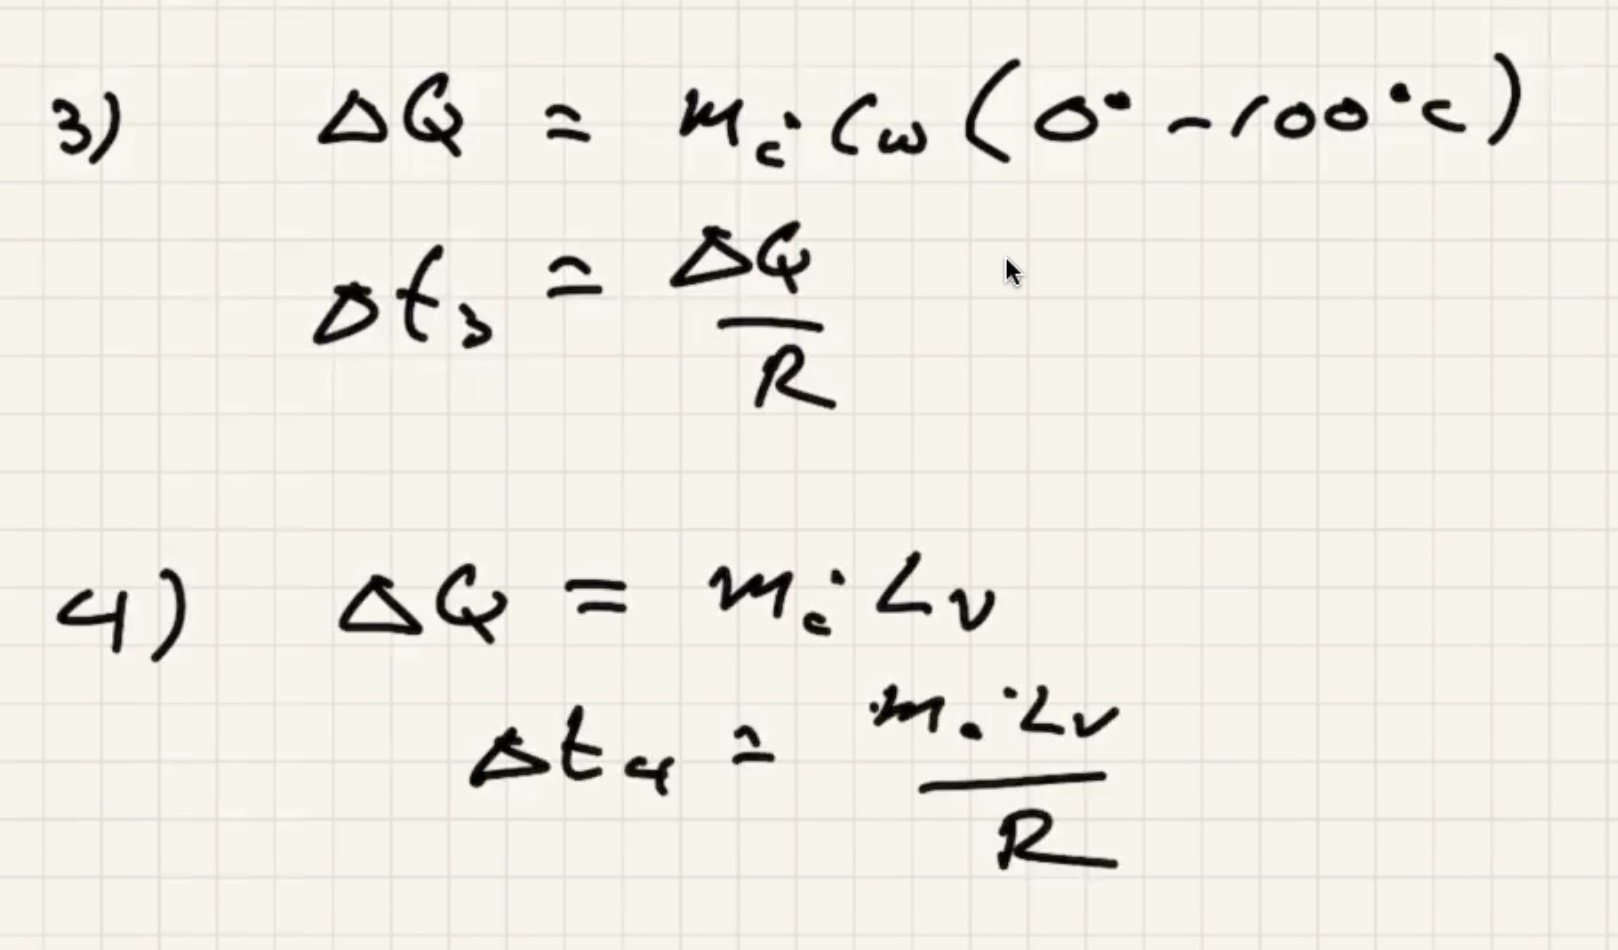 3) ΔQ = m_c · C_w (0° - 100°C)
Δt_3 = ΔQ / R
4) ΔQ = m_c · L_v
Δt_4 = m. · L_v / R